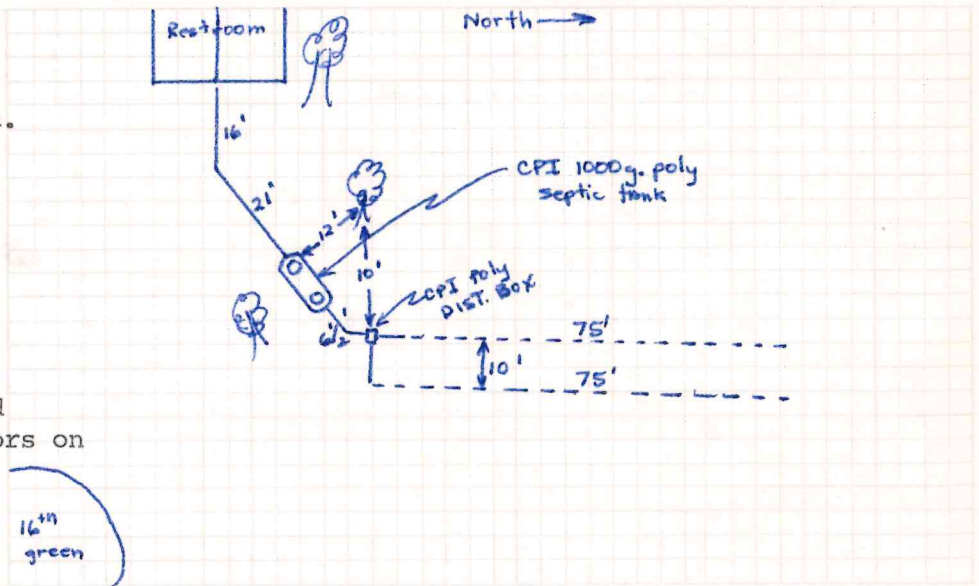 Restroom
North
16'
21'
CPI 1000g. poly
septic tank
12'
10'
CPI poly
DIST. BOX
6 1/2'
75'
10'
75'
ors on
16th
green